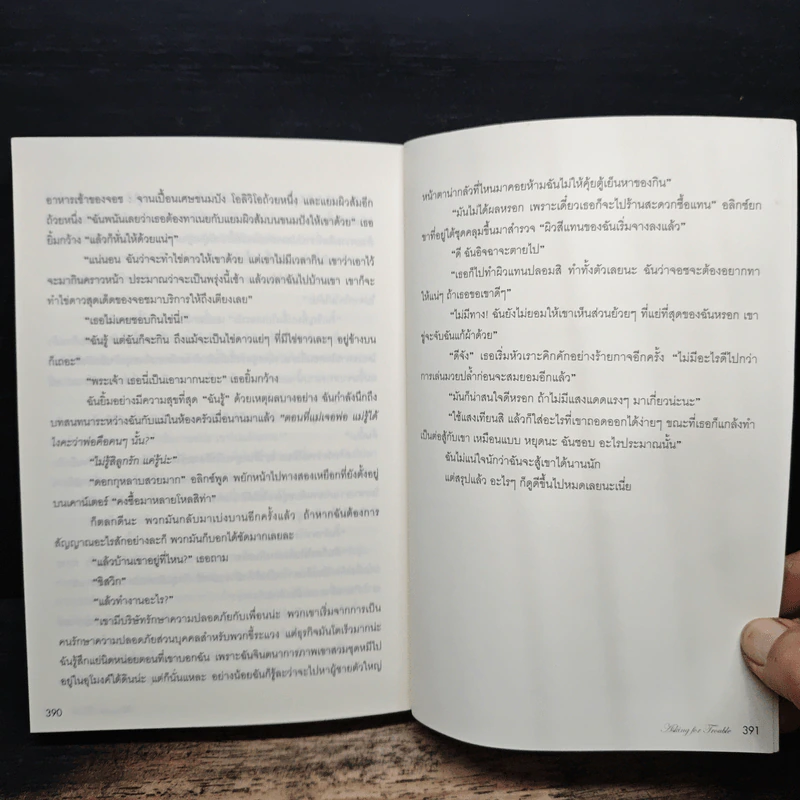 อาหารเช้าของจอช : จานเปื้อนเศษขนมปัง โอลิวิโอถ้วยหนึ่ง และแยมผิวส้มอีก
ถ้วยหนึ่ง “ฉันพนันเลยว่าเธอต้องทาเนยกับแยมผิวส้มบนขนมปังให้เขาด้วย” เธอ
ยิ้มกว้าง “แล้วก็หั่นให้ด้วยแน่ๆ”
“แน่นอน ฉันว่าจะทำไข่ดาวให้เขาด้วย แต่เขาไม่มีเวลากิน เขาว่าเอาไว้
จะมากินคราวหน้า ประมาณว่าจะเป็นพรุ่งนี้เช้า แล้วเวลาฉันไปบ้านเขา เขาก็จะ
ทำไข่ดาวสุดเด็ดของจอชมาบริการให้ถึงเตียงเลย”
“เธอไม่เคยชอบกินไข่นี่!”
“ฉันรู้ แต่ฉันก็จะกิน ถึงแม้จะเป็นไข่ดาวแย่ๆ ที่มีไข่ขาวเละๆ อยู่ข้างบน
ก็เถอะ”
“พระเจ้า เธอนี่เป็นเอามากนะยะ” เธอยิ้มกว้าง
ฉันยิ้มอย่างมีความสุขที่สุด “ฉันรู้” ด้วยเหตุผลบางอย่าง ฉันกำลังนึกถึง
บทสนทนาระหว่างฉันกับแม่ในห้องครัวเมื่อนานมาแล้ว “ตอนที่แม่เจอพ่อ แม่รู้ได้
ไงคะว่าพ่อคือคนๆ นั้น?”
“ไม่รู้สิลูกรัก แค่รู้น่ะ”
“ดอกกุหลาบสวยมาก” อลิกซ์พูด พยักหน้าไปทางสองเหยือกที่ยังตั้งอยู่
บนเคาน์เตอร์ “คงซื้อมาหลายโหลสิท่า”
ก็ตลกดีนะ พวกมันกลับมาเบ่งบานอีกครั้งแล้ว ถ้าหากฉันต้องการ
สัญญาณอะไรสักอย่างละก็ พวกมันก็บอกได้ชัดมากเลยละ
“แล้วบ้านเขาอยู่ที่ไหน?” เธอถาม
“ชิสวิก”
“แล้วทำงานอะไร?”
“เขามีบริษัทรักษาความปลอดภัยกับเพื่อนน่ะ พวกเขาเริ่มจากการเป็น
คนรักษาความปลอดภัยส่วนบุคคลสำหรับพวกขี้ระแวง แต่ธุรกิจมันโตเร็วมากน่ะ
ฉันรู้สึกแย่นิดหน่อยตอนที่เขาบอกฉัน เพราะฉันจินตนาการภาพเขาสวมชุดหมีไป
อยู่ในอุโมงค์ใต้ดินน่ะ แต่ก็นั่นแหละ อย่างน้อยฉันก็รู้ละว่าจะไปหาผู้ชายตัวใหญ่
390
หน้าตาน่ากลัวที่ไหนมาคอยห้ามฉันไม่ให้คุ้ยตู้เย็นหาของกิน”
“มันไม่ได้ผลหรอก เพราะเดี๋ยวเธอก็จะไปร้านสะดวกซื้อแทน” อลิกซ์ยก
ขาที่อยู่ใต้ชุดคลุมขึ้นมาสำรวจ “ผิวสีแทนของฉันเริ่มจางลงแล้ว”
“ดี ฉันอิจฉาจะตายไป”
“เธอก็ไปทำผิวแทนปลอมสิ ทำทั้งตัวเลยนะ ฉันว่าจอชจะต้องอยากทา
ให้แน่ๆ ถ้าเธอขอเขาดีๆ”
“ไม่มีทาง! ฉันยังไม่ยอมให้เขาเห็นส่วนย้วยๆ ที่แย่ที่สุดของฉันหรอก เขา
ขู่จะจับฉันแก้ผ้าด้วย”
“ดีจัง” เธอเริ่มหัวเราะคิกคักอย่างร้ายกาจอีกครั้ง “ไม่มีอะไรดีไปกว่า
การเล่นมวยปล้ำก่อนจะสมยอมอีกแล้ว”
“มันก็น่าสนใจดีหรอก ถ้าไม่มีแสงแดดแรงๆ มาเกี่ยวน่ะนะ”
“ใช้แสงเทียนสิ แล้วก็ใส่อะไรที่เขาถอดออกได้ง่ายๆ ขณะที่เธอก็แกล้งทำ
เป็นต่อสู้กับเขา เหมือนแบบ หยุดนะ ฉันชอบ อะไรประมาณนั้น”
ฉันไม่แน่ใจนักว่าฉันจะสู้เขาได้นานนัก
แต่สรุปแล้ว อะไรๆ ก็ดูดีขึ้นไปหมดเลยนะเนี่ย
Asking for Trouble 391